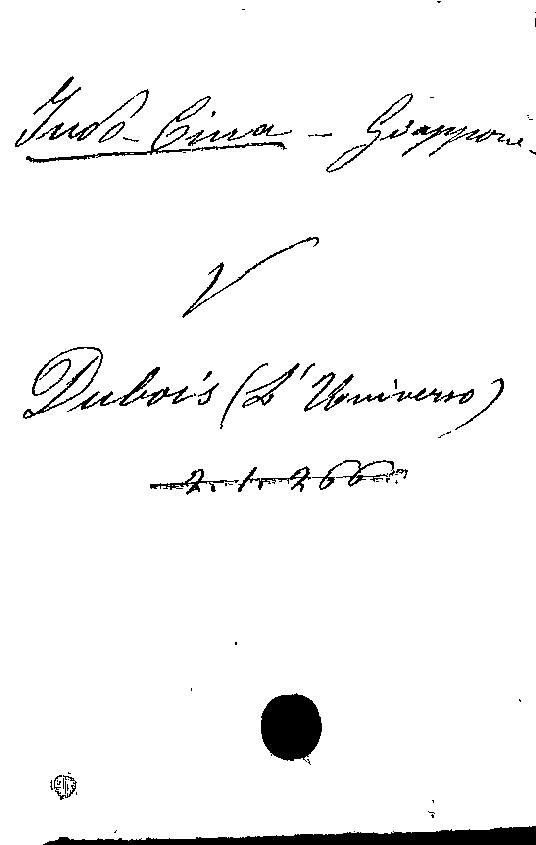 Indo-Cina - Giappone
V
Dubois (L'Universo)
2.1.266